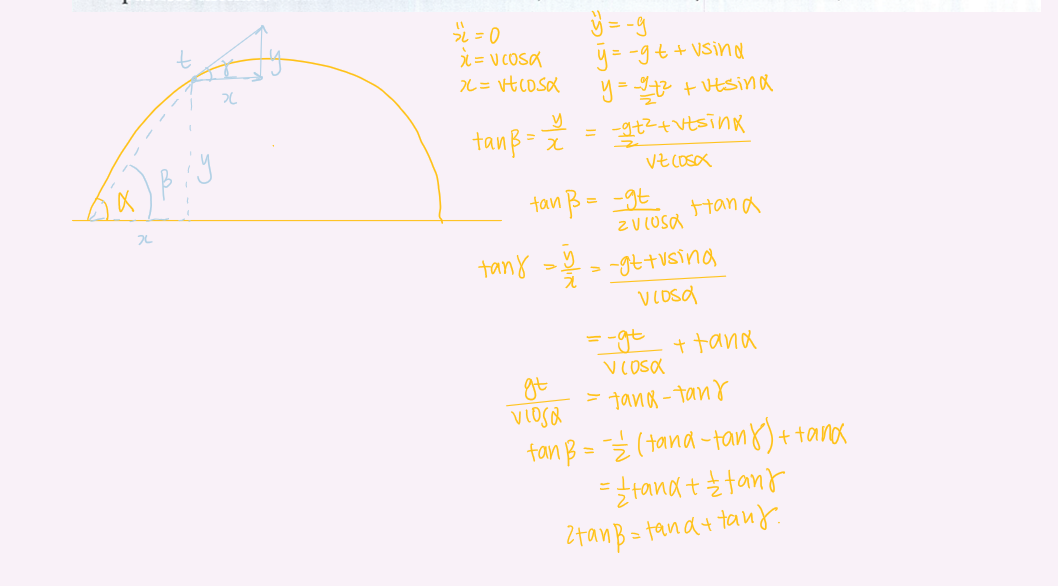 ẍ = 0 ÿ = -g
ẋ = vcosα ȳ = -gt + vsinα
x = vtcosα y = -g/2 t² + vtsinα
t γ y
x
tanβ = y/x = (-g/2 t² + vtsinα)/(vtcosα)
β y
α
x
tanβ = -gt/(2vcosα) + tanα
tanγ = ȳ/x̄ = (-gt + vsinα)/(vcosα)
= -gt/(vcosα) + tanα
gt/(vcosα) = tanα - tanγ
tanβ = -1/2 (tanα - tanγ) + tanα
= 1/2 tanα + 1/2 tanγ
2tanβ = tanα + tanγ.